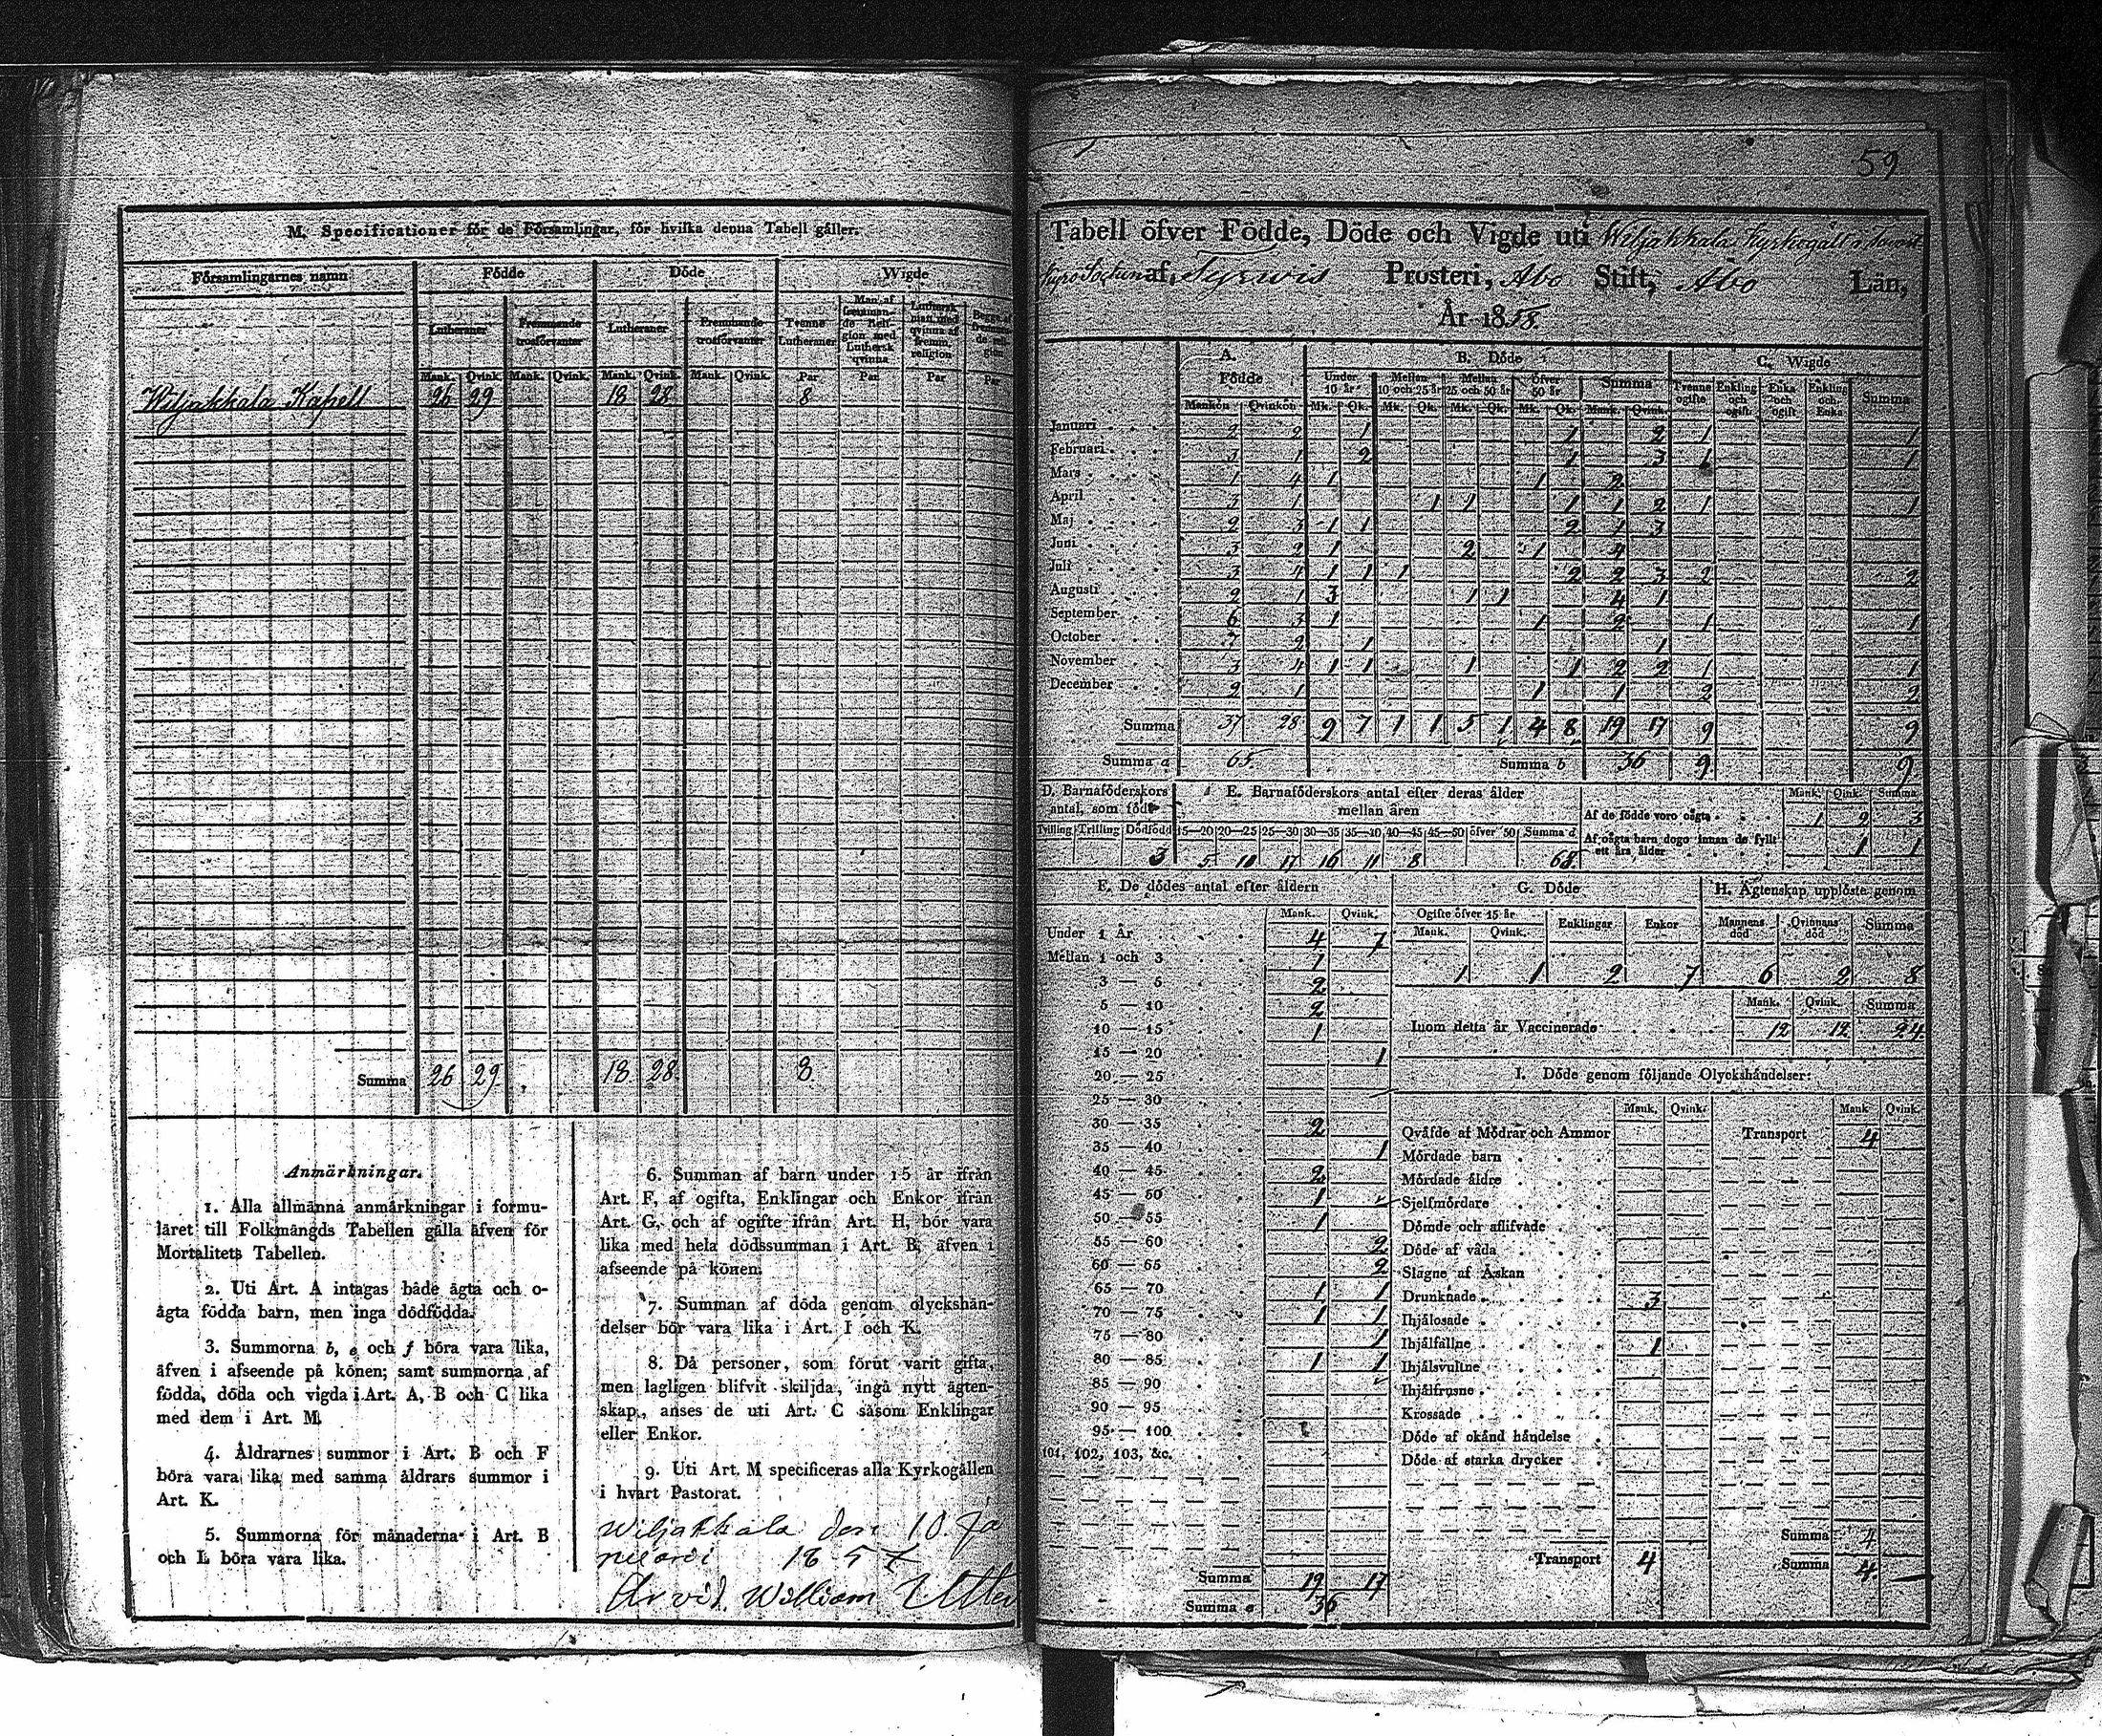 M. Specificationer för de Församlingar, för hvilka denna Tabell gäller.
Församlingarnes namn Födde Döde Wigde
Lutheraner Fremmande trosförvanter Lutheraner Fremmande trosförvanter Tvenne Lutheraner Man af fremmande religion med Luthersk qvinna Luthersk man med qvinna af fremm. religion Begge af
Mank. Qvink. Mank. Qvink. Mank. Qvink. Mank. Qvink. Par Par Par Par
Wiljakkala Kapell 26 29 18 28 8
Summa 26 29 18 28 8
Anmärkningar.
1. Alla allmänna anmärkningar i formu-
läret till Folkmängds Tabellen gälla äfven för
Mortalitets Tabellen.
2. Uti Art. A intagas både ägta och o-
ägta födda barn, men inga dödfödda.
3. Summorna b, e och f böra vara lika,
äfven i afseende på könen; samt summorna af
födda, döda och vigda i Art. A, B och C lika
med dem i Art. M.
4. Åldrarnes summor i Art. B och F
böra vara lika med samma åldrars summor i
Art. K.
5. Summorna för månaderna i Art. B
och L böra vara lika.
6. Summan af barn under 15 år ifrån
Art. F, af ogifta, Enklingar och Enkor ifrån
Art. G, och af ogifte ifrån Art. H, bör vara
lika med hela dödssumman i Art. B, äfven i
afseende på könen.
7. Summan af döda genom olyckshän-
delser bör vara lika i Art. I och K.
8. Då personer, som förut varit gifta,
men lagligen blifvit skiljda, ingå nytt ägten-
skap, anses de uti Art. C såsom Enklingar
eller Enkor.
9. Uti Art. M specificeras alla Kyrkogällen
i hvart Pastorat.
Wiljakkala den 10 Ja
nuari 1857
Arvid William
59
Tabell öfver Födde, Döde och Vigde uti Wiljakkala Kyrkogäll
Kyro Socken af Tyrwis Prosteri, Åbo Stift, Åbo Län,
År 1858.
A. Födde B. Döde C. Wigde
Under 10 år Mellan 10 och 25 år Mellan 25 och 50 år Öfver 50 år Summa Tvenne ogifte Enkling och ogift Enka och ogift Enkling och Enka Summa
Mankön Qvinkön Mk. Qk. Mk. Qk. Mk. Qk. Mk. Qk. Mank. Qvink.
Januari 2 2 1 1 2 1 1
Februari 3 1 2 1 3 1 1
Mars 1 4 1 1 2
April 3 1 1 1 1 1 2 1 1
Maj 2 3 1 1 2 1 3
Juni 3 2 1 2 1 4
Juli 3 4 1 1 1 2 2 3 2 2
Augusti 2 1 3 1 1 4 1
September 6 3 1 1 2 1 1
October 7 2 1 1
November 3 4 1 1 1 1 2 2 1 1
December 2 1 1 1 2 2
Summa 37 28 9 7 1 1 5 1 4 8 19 17 9 9
Summa a 65. Summa b 36 9 9
D. Barnaföderskors antal, som födt E. Barnaföderskors antal efter deras ålder mellan åren
Mank. Qink. Summa
Af de födde voro oägta 1 2 3
Af oägta barn dogo innan de fyllt ett års ålder 1 1
Tvilling Trilling Dödfödd 15—20 20—25 25—30 30—35 35—40 40—45 45—50 öfver 50 Summa d
3 5 10 17 16 11 8 68
F. De dödes antal efter åldern
Mank. Qvink.
Under 1 År 4 7
Mellan 1 och 3 1
3 — 5 2
5 — 10 2
10 — 15 1
15 — 20 1
20 — 25
25 — 30
30 — 35 2
35 — 40 1
40 — 45 2
45 — 50 1
50 — 55 1
55 — 60 2
60 — 65 2
65 — 70 1 1
70 — 75 1 1
75 — 80 1
80 — 85 1 1
85 — 90
90 — 95
95 — 100
101, 102, 103, &c.
Summa 19 17
Summa e 36
G. Döde
Ogifte öfver 15 år Enklingar Enkor
Mank. Qvink.
1 1 2 7
H. Ägtenskap upplöste genom
Mannens död Qvinnans död Summa
6 2 8
Mank. Qvink. Summa
Inom detta år Vaccinerade 12 12 24
I. Döde genom följande Olyckshändelser:
Mank. Qvink. Mank Qvink.
Qväfde af Mödrar och Ammor Transport 4
Mördade barn
Mördade äldre
Sjelfmördare
Dömde och aflifvade
Döde af våda
Slagne af Åskan
Drunknade 3
Ihjälosade
Ihjälfallne 1
Ihjälsvultne
Ihjälfrusne
Krossade
Döde af okänd händelse
Döde af starka drycker
Summa 4
Transport 4 Summa 4